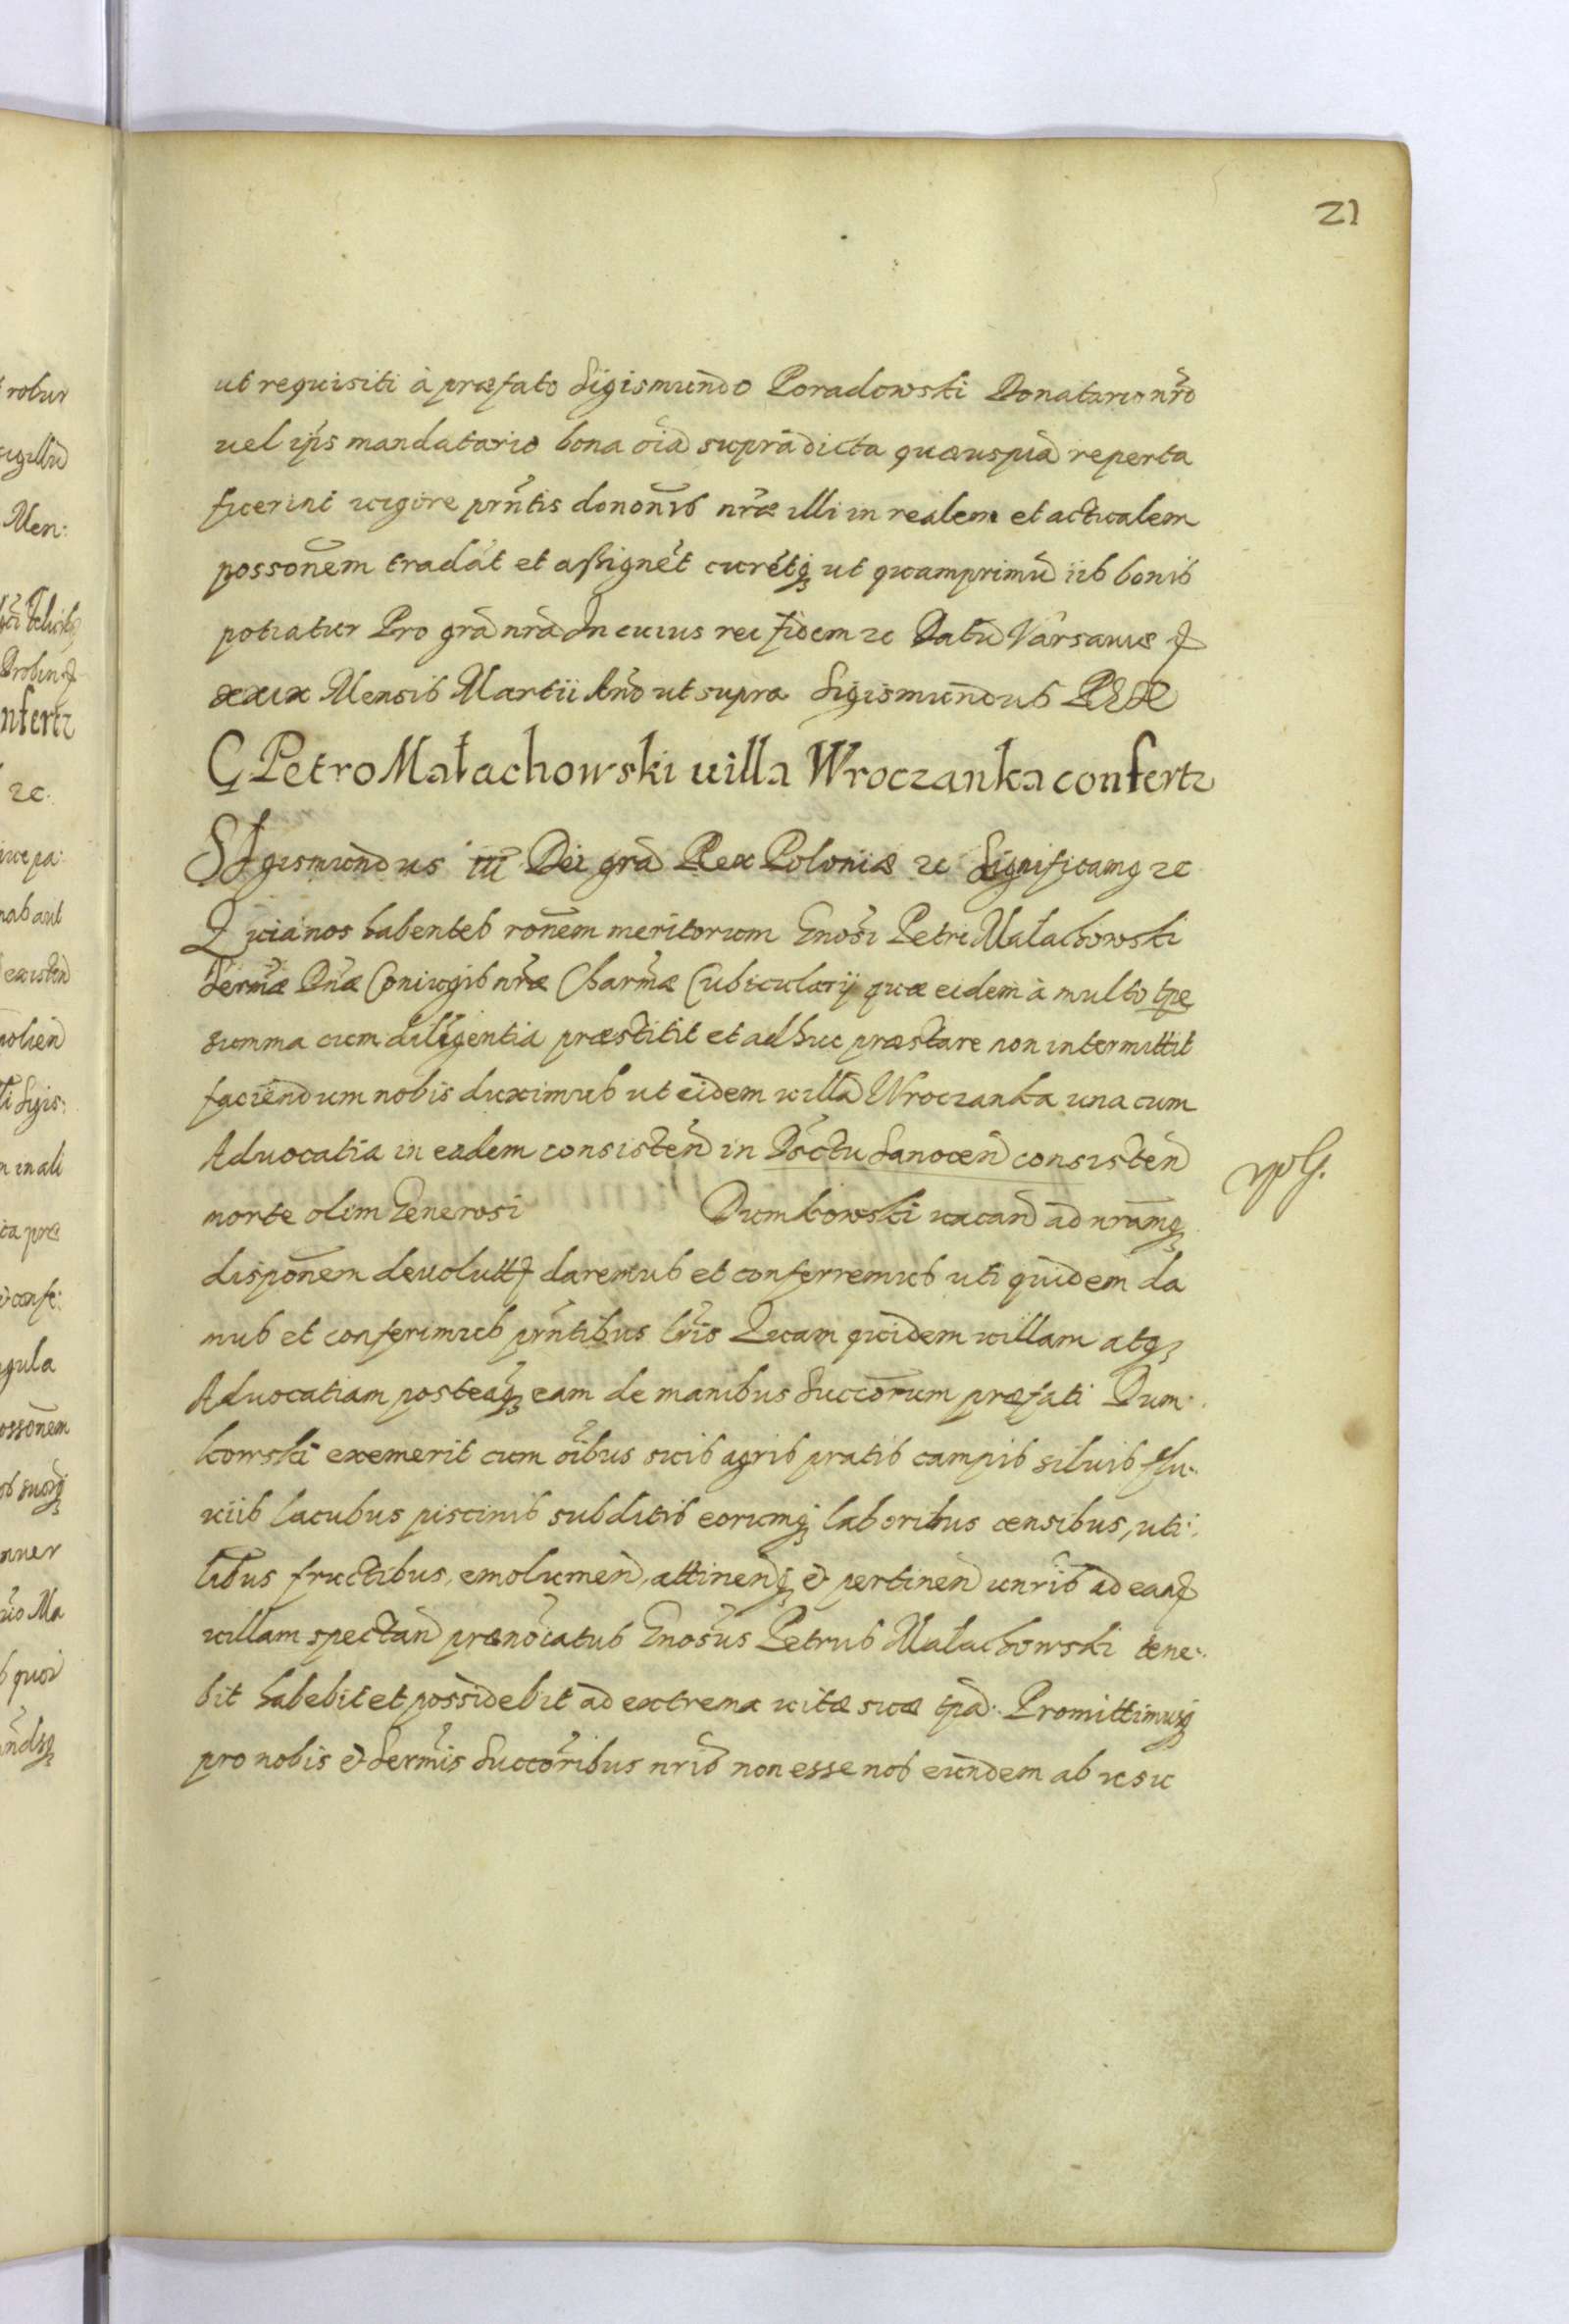 21
ut requisiti à præfato Sigismundo Poradowski Donatario nr̃o
uel ip̃s mandatario bona oĩa supradicta quæuspiã reperta
fuerint uigore prñtis donoñis nr̃æ illi in realem et actualem
possoñem tradãt et assignẽt curẽtq₃ ut quamprimũ iis bonis
potiatur Pro grã nr̃a In cuius rei fidem ꝛc Datũ Varsauiæ
xxix Mensis Martii An̄o ut supra Sigismundus Rex
G Petro Małachowski uilla Wroczanka confertꝛ
SIgismundus III Dei grã Rex Poloniæ ꝛc Significamꝰ ꝛc
Quia nos habentes roñem meritorum Gnõsi Petri Małachowski
Serm̃æ Dñæ Coniugis nr̃æ Charm̃æ Cubicularij quæ eidem à multo tp̃e
summa cum diligentia præstitit et adhuc præstare non intermittit
faciendum nobis duximus ut eidem uillã Wroczanka una cum
Aduocatia in eadem consisteñ in Dsctu Sanoceñ consisteñ
morte olim Generosi Dumkowski uacañ ad nr̃amq₃
dispoñem deuolut daremus et conferremus uti quidem da
mus et conferimus prñtibus lr̃is Quam quidem uillam atq₃
Aduocatiam posteaq₃ eam de manibus Succõrum præfati Dum:
kowski exemerit cum oĩbus suis agris pratis campis siluis flu:
uiis lacubus piscinis subditis eorumq₃ laboribus censibus, uti:
litibus fructibus, emolumeñ, attineñq₃ & pertineñ unr̃is ad eañ
uillam spectañ prænoĩatus Gnõsus Petrus Małachowski tene:
bit habebit et possidebit ad extrema uitæ suæ tp̃a: Promittimusq₃
pro nobis & Serm̃is Succõribus nr̃is non esse nos eundem ab usu